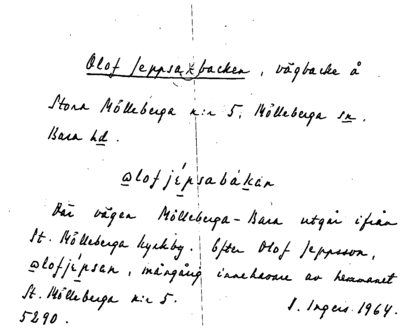 Olof Jeppsa-backen, vägbacke å
Stora Mölleberga n:r 5, Mölleberga sn.
Bara hd.
olofjépsabákan
Där vägen Mölleberga-Bara utgår ifrån
St. Mölleberga kyrkby. Efter Olof Jeppsson,
olofjépsan, mångårig innehavare av hemmanet
St. Mölleberga n:r 5.
S. Ingers 1964.
5290.